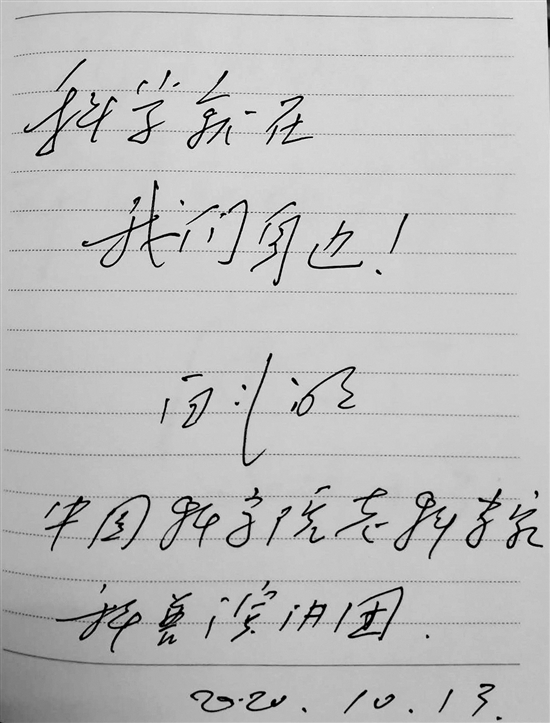 科学就在
我们身边！
中国科学院老科学家
科普演讲团.
2020.10.13.